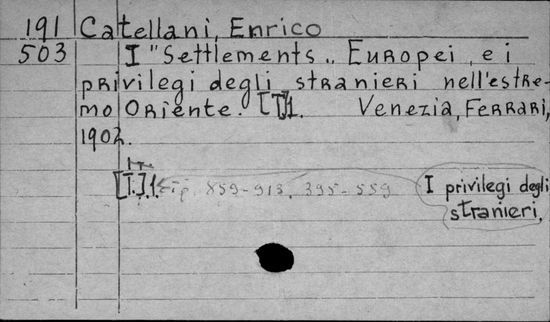 191 Catellani, Enrico
503 I "Settlements„ Europei, e i
privilegi degli stranieri nell'estre-
mo Oriente. [T.]1. Venezia, Ferrari,
1902.
[T.].1. p. 859-913, 395-559 I privilegi degli
stranieri.